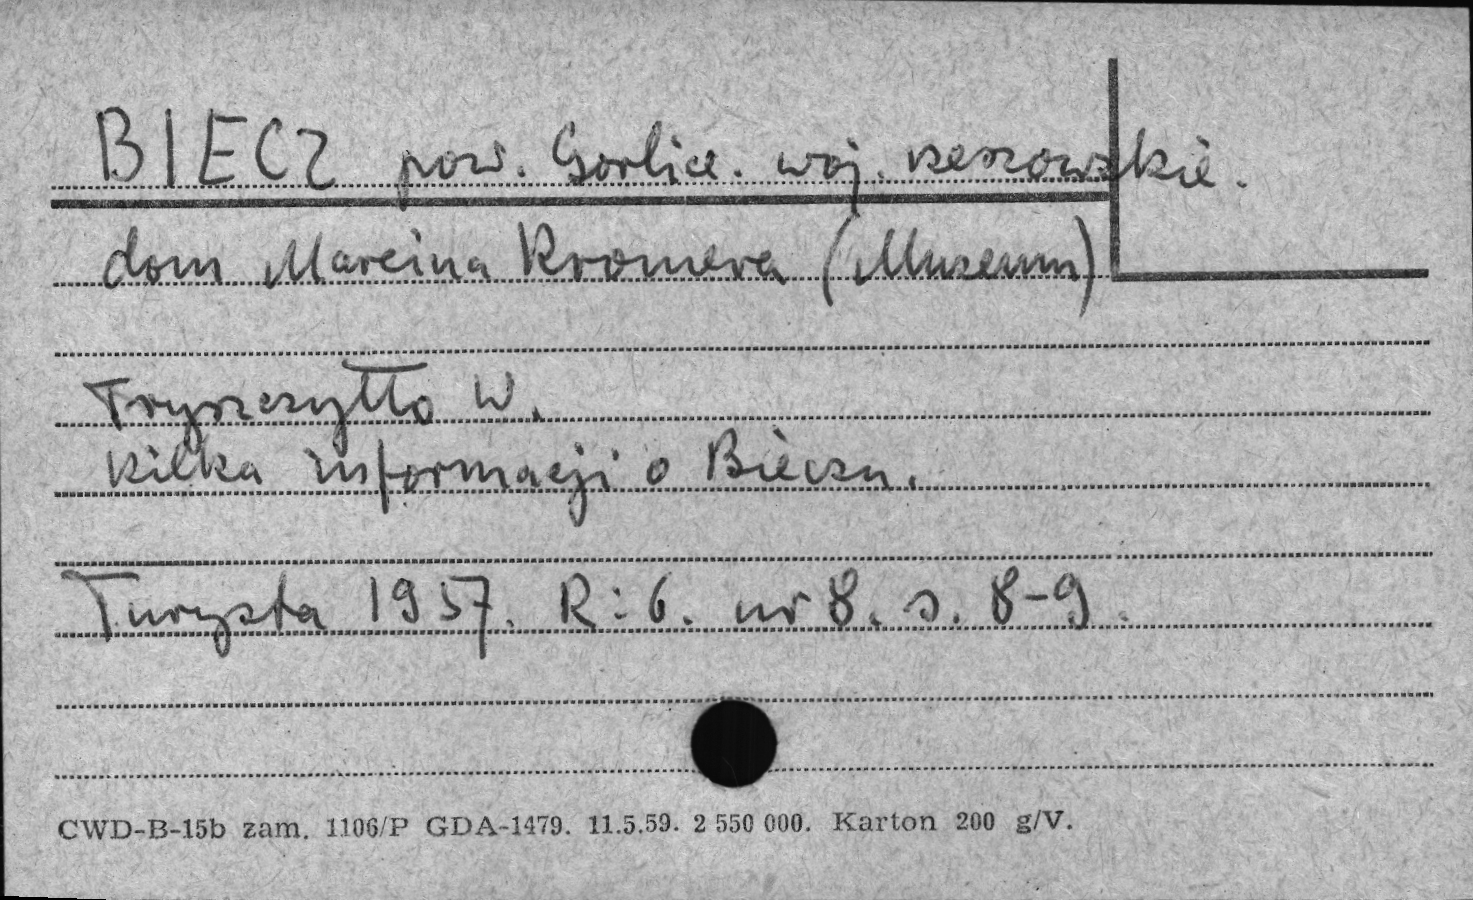 BIECZ pow. Gorlice. woj. rzeszowskie.
dom Marcina Kromera (Muzeum)
Tryszczytło W.
kilka informacji o Bieczu.
Turysta 1957. R: 6. nr 8. s. 8-9.
CWD-B-15b zam. 1106/P GDA-1479. 11.5.59. 2 550 000. Karton 200 g/V.